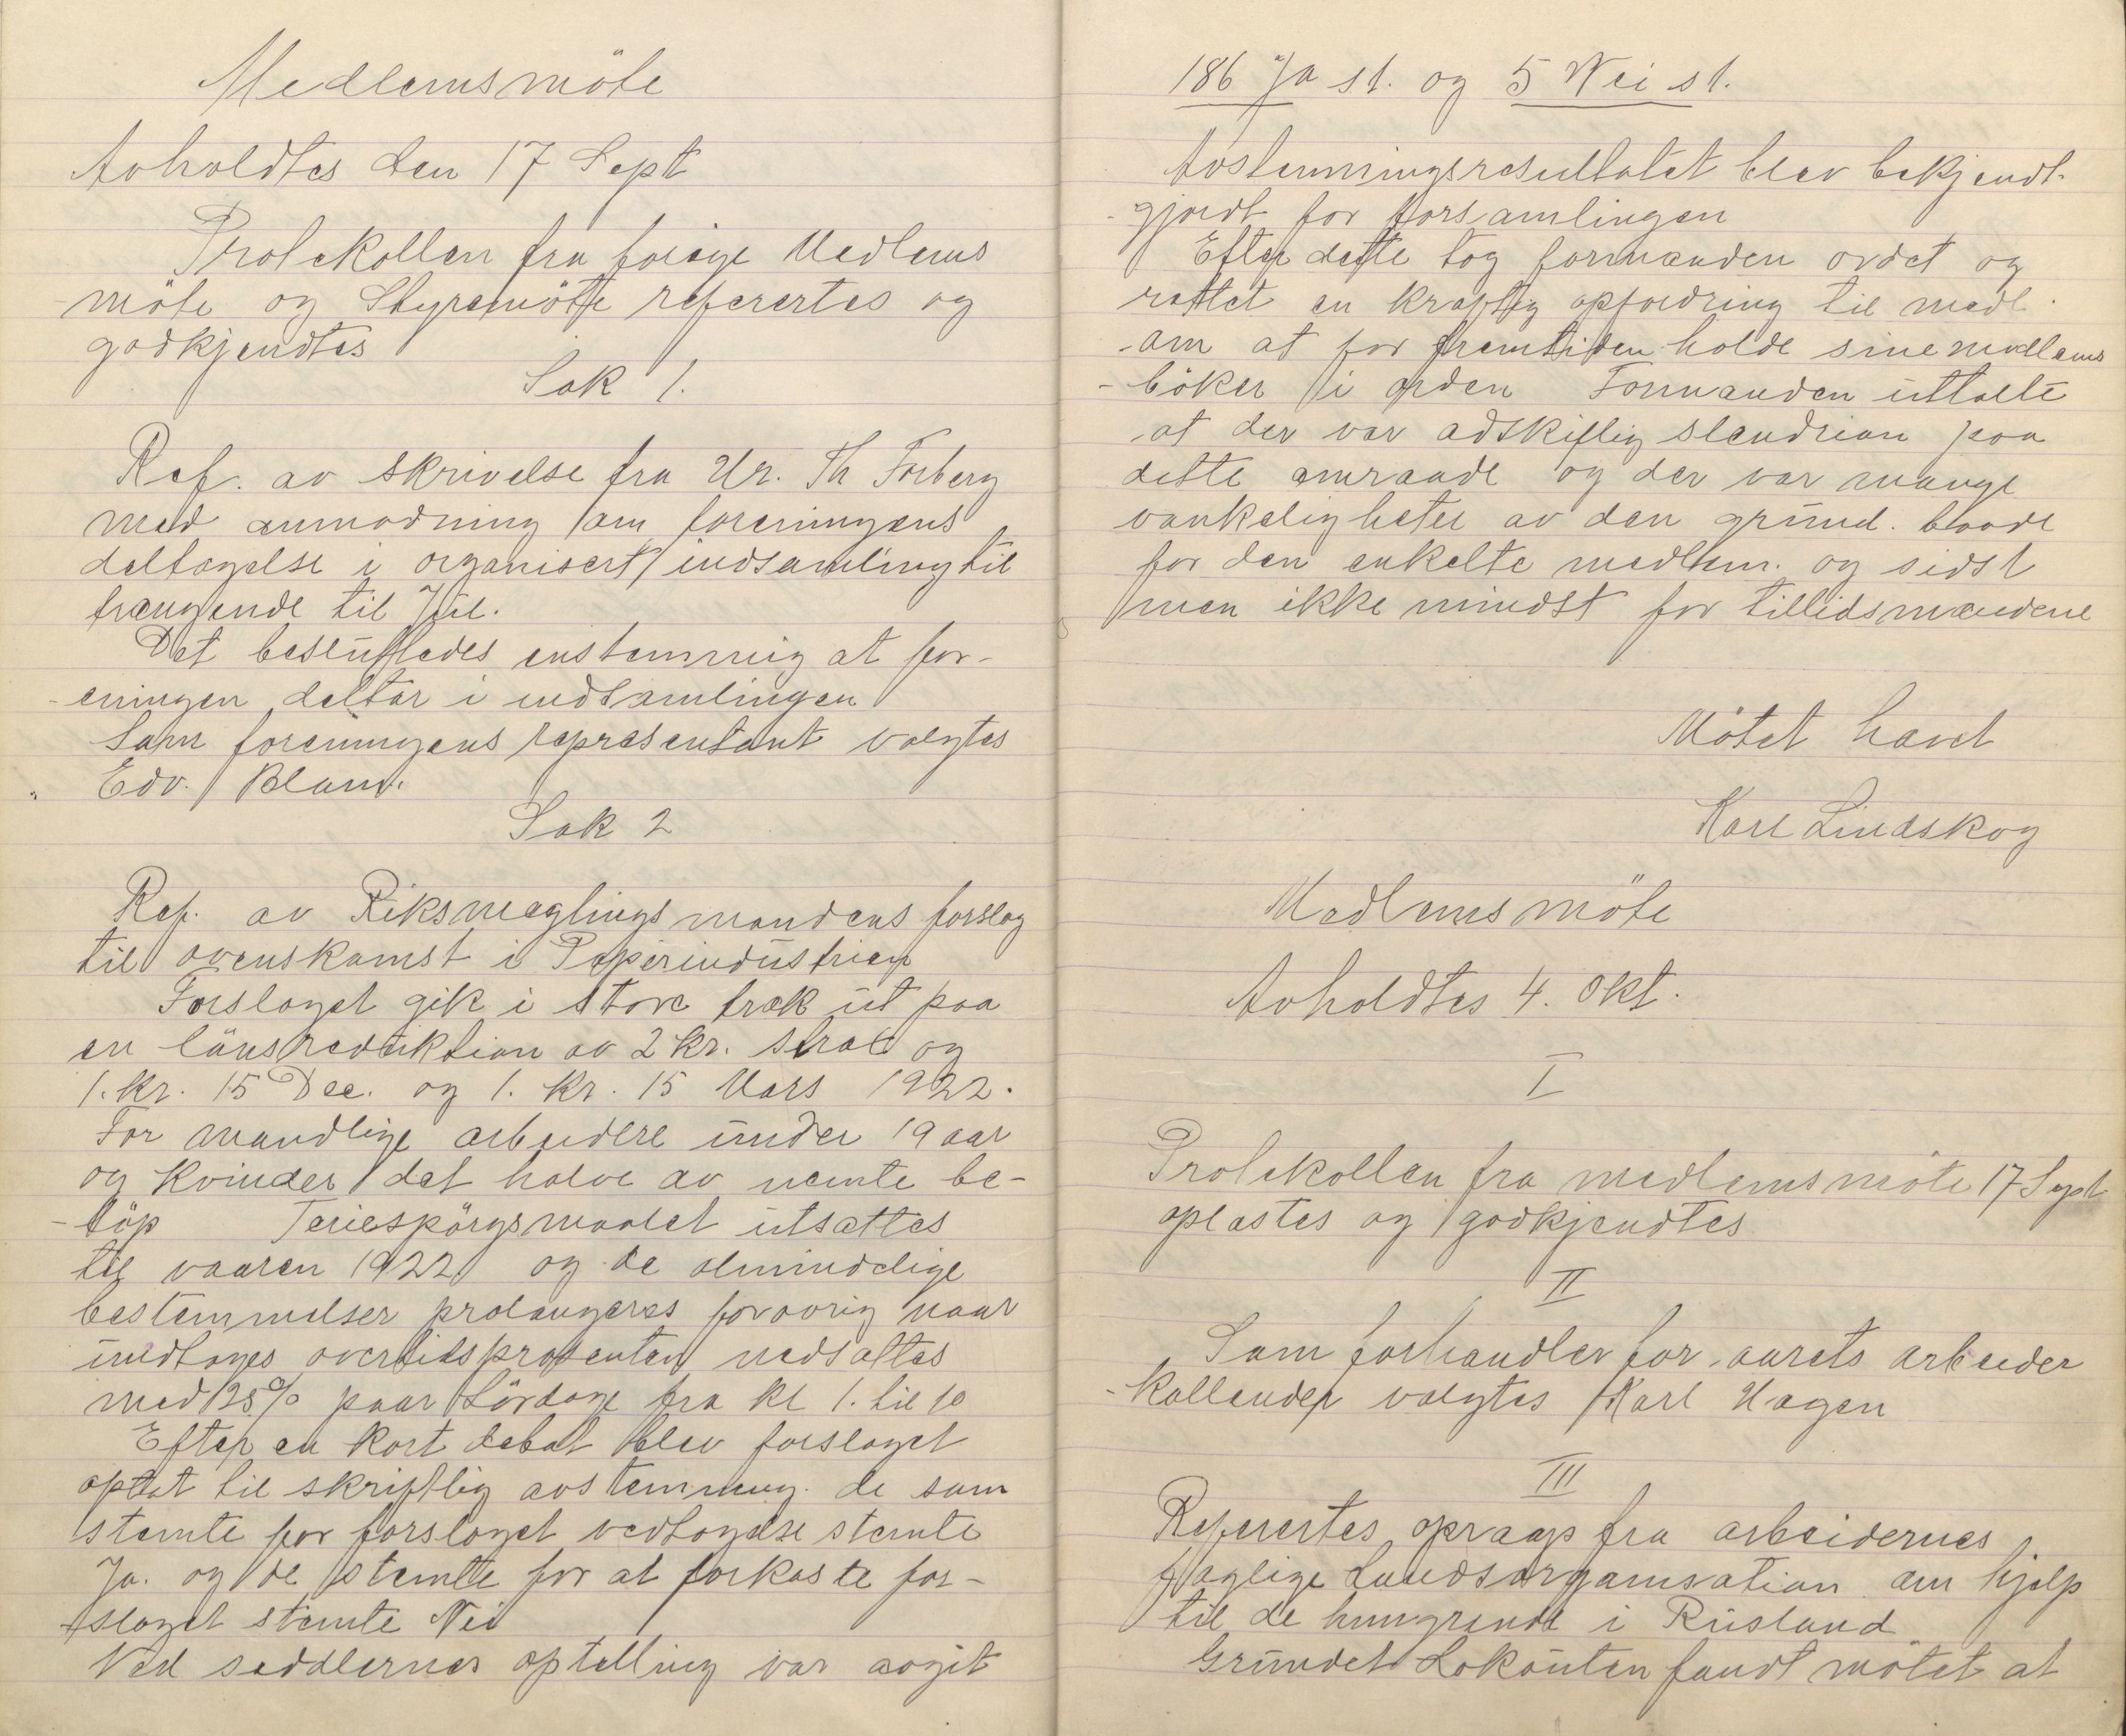 Medlemsmöte
Avholdtes den 17 Sept
Protokollen fra forige Medlems
möte og Styremötte referertes og
godkjendtes
Sak 1.
Ref. av skrivelse fra Hr. Th Forberg
med anmodning om foreningens
deltagelse i organisert indsamling til
trængende til Jul.
Det besluttedes enstemmig at for-
-eningen deltar i indsamlingen
Som foreningens representant valgtes
Edv. Blom.
Sak 2
Ref. av Riksmæglingsmandens forslag
til ovenskomst i Papirindustrien
Forslaget gik i store træk ut paa
en lönsreduktion av 2 kr. strak og
1. kr. 15 Dec. og 1. kr. 15 Mars 1922.
For mandlige arbeidere under 19 aar
og kvinder det halve av nemte be-
-löp Feriespörgsmaalet utsættes
til vaaren 1922 og de almindelige
bestemmelser prolongeres forøvrig naar
undtages overtidsprosenten nedsættes
med 25% paa Lördage fra kl 1. til 10
Efter en kort debat blev forslaget
optat til skriftlig avstemming. de som
stemte for forslaget vedtagelse stemte
Ja. og de stemte for at forkaste for-
-slaget stemte Nei
Ved seddlernes optelling var avgit
186 Ja st. og 5 Nei st.
Avstemningsresultatet blev bekjendt-
-gjordt for forsamlingen
Efter dette tog formanden ordet og
rettet en kraftig opfordring til medl.
-om at for fremtiden holde sine medlems
-böker i orden Formanden uttalte
at der var adskillig slendrian paa
dette omraade og der var mange
vankeligheter av den grund. baade
for den enkelte medlem. og sidst
men ikke mindst for tillidsmændene
Mötet hævet
Karl Lindskog
Medlemsmöte
Avholdtes 4. Okt.
I
Protokollen fra medlemsmöte 17 Sept
oplæstes og godkjendtes
II
Som forhandler for aarets arbeider
-kallender valgtes Karl Hagen
III
Referertes opraap fra arbeidernes
faglige Landsorganisation om hjelp
til de hungrende i Rusland
Grundet Lokouten fandt mötet at